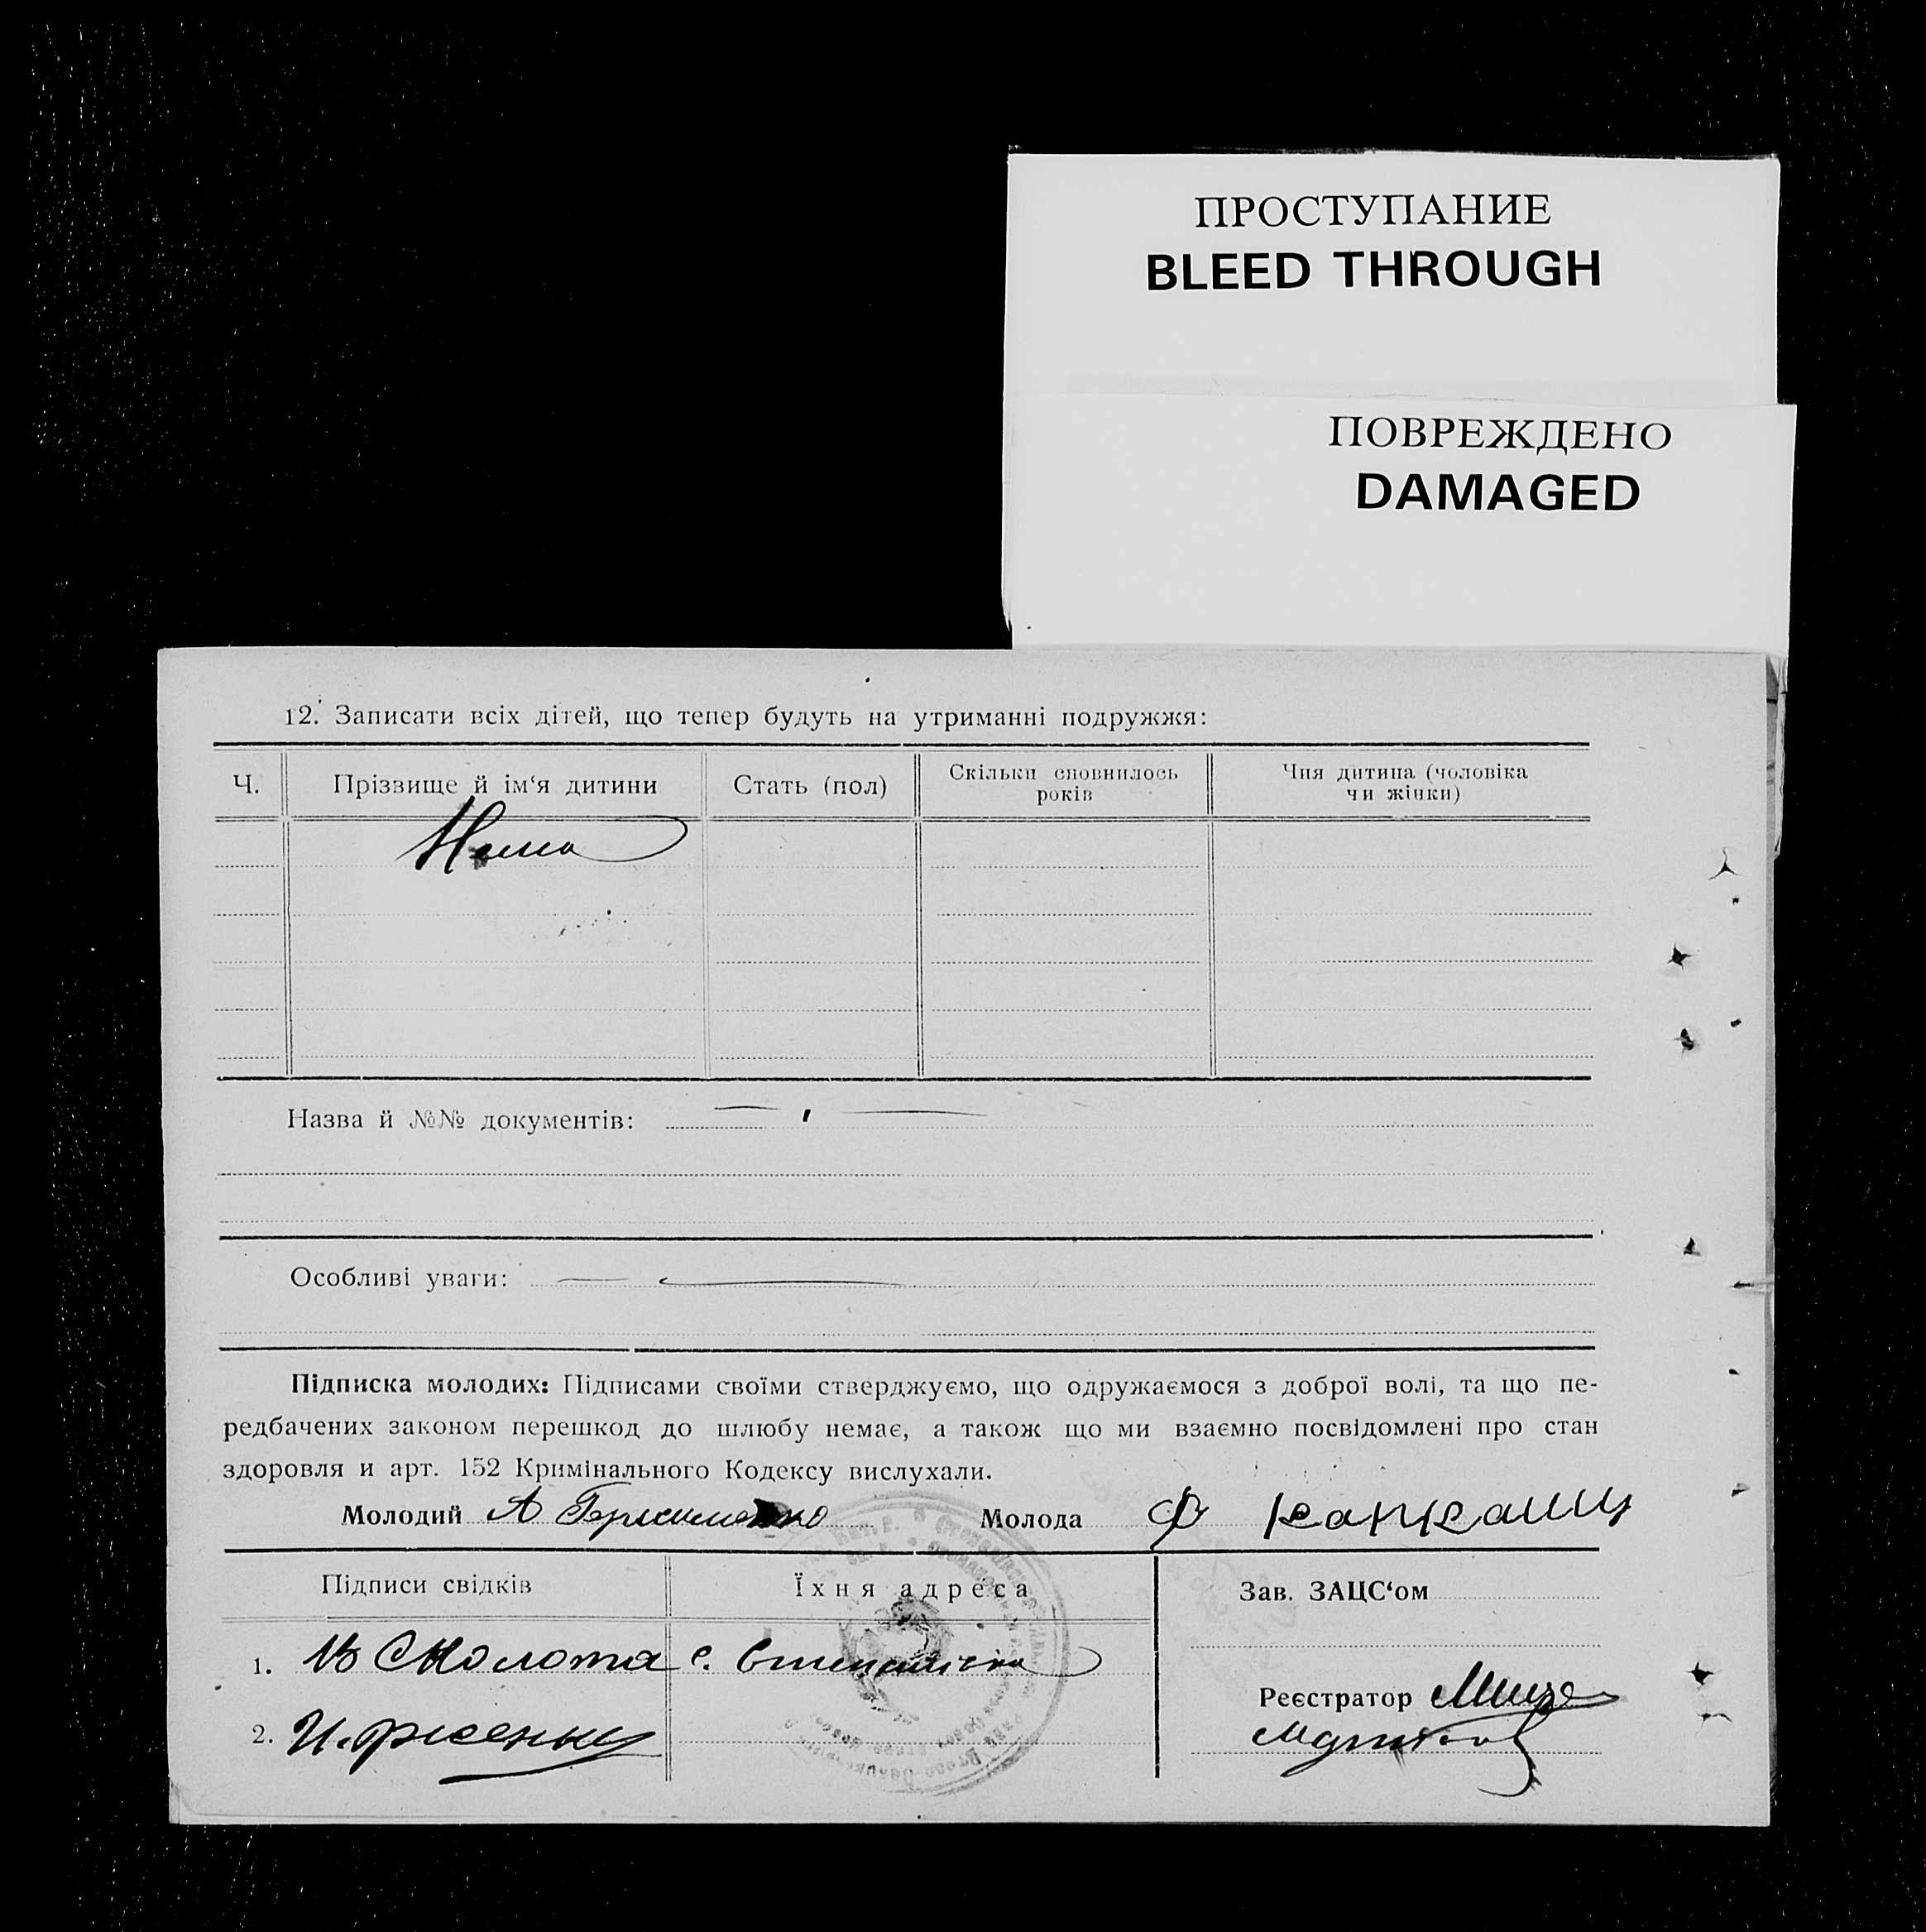 ПРОСТУПАНИЕ
BLEED THROUGH
ПОВРЕЖДЕНО
DAMAGED
12. Записати всіх дітей, що тепер будуть на утриманні подружжя:
Ч. Прізвище й ім‘я дитини Стать (пол) Скільки сповнилось років Чия дитина (чоловіка чи жінки)
Нема
Назва й №№ документів:
Особливі уваги:
Підписка молодих: Підписами своїми стверджуємо, що одружаємося з доброї волі, та що пе-
редбачених законом перешкод до шлюбу немає, а також що ми взаємно посвідомлені про стан
здоровля и арт. 152 Кримінального Кодексу вислухали.
Молодий А Молода Ф
Підписи свідків Їхня адреса Зав. ЗАЦС‘ом
1. с.
Реєстратор
2.